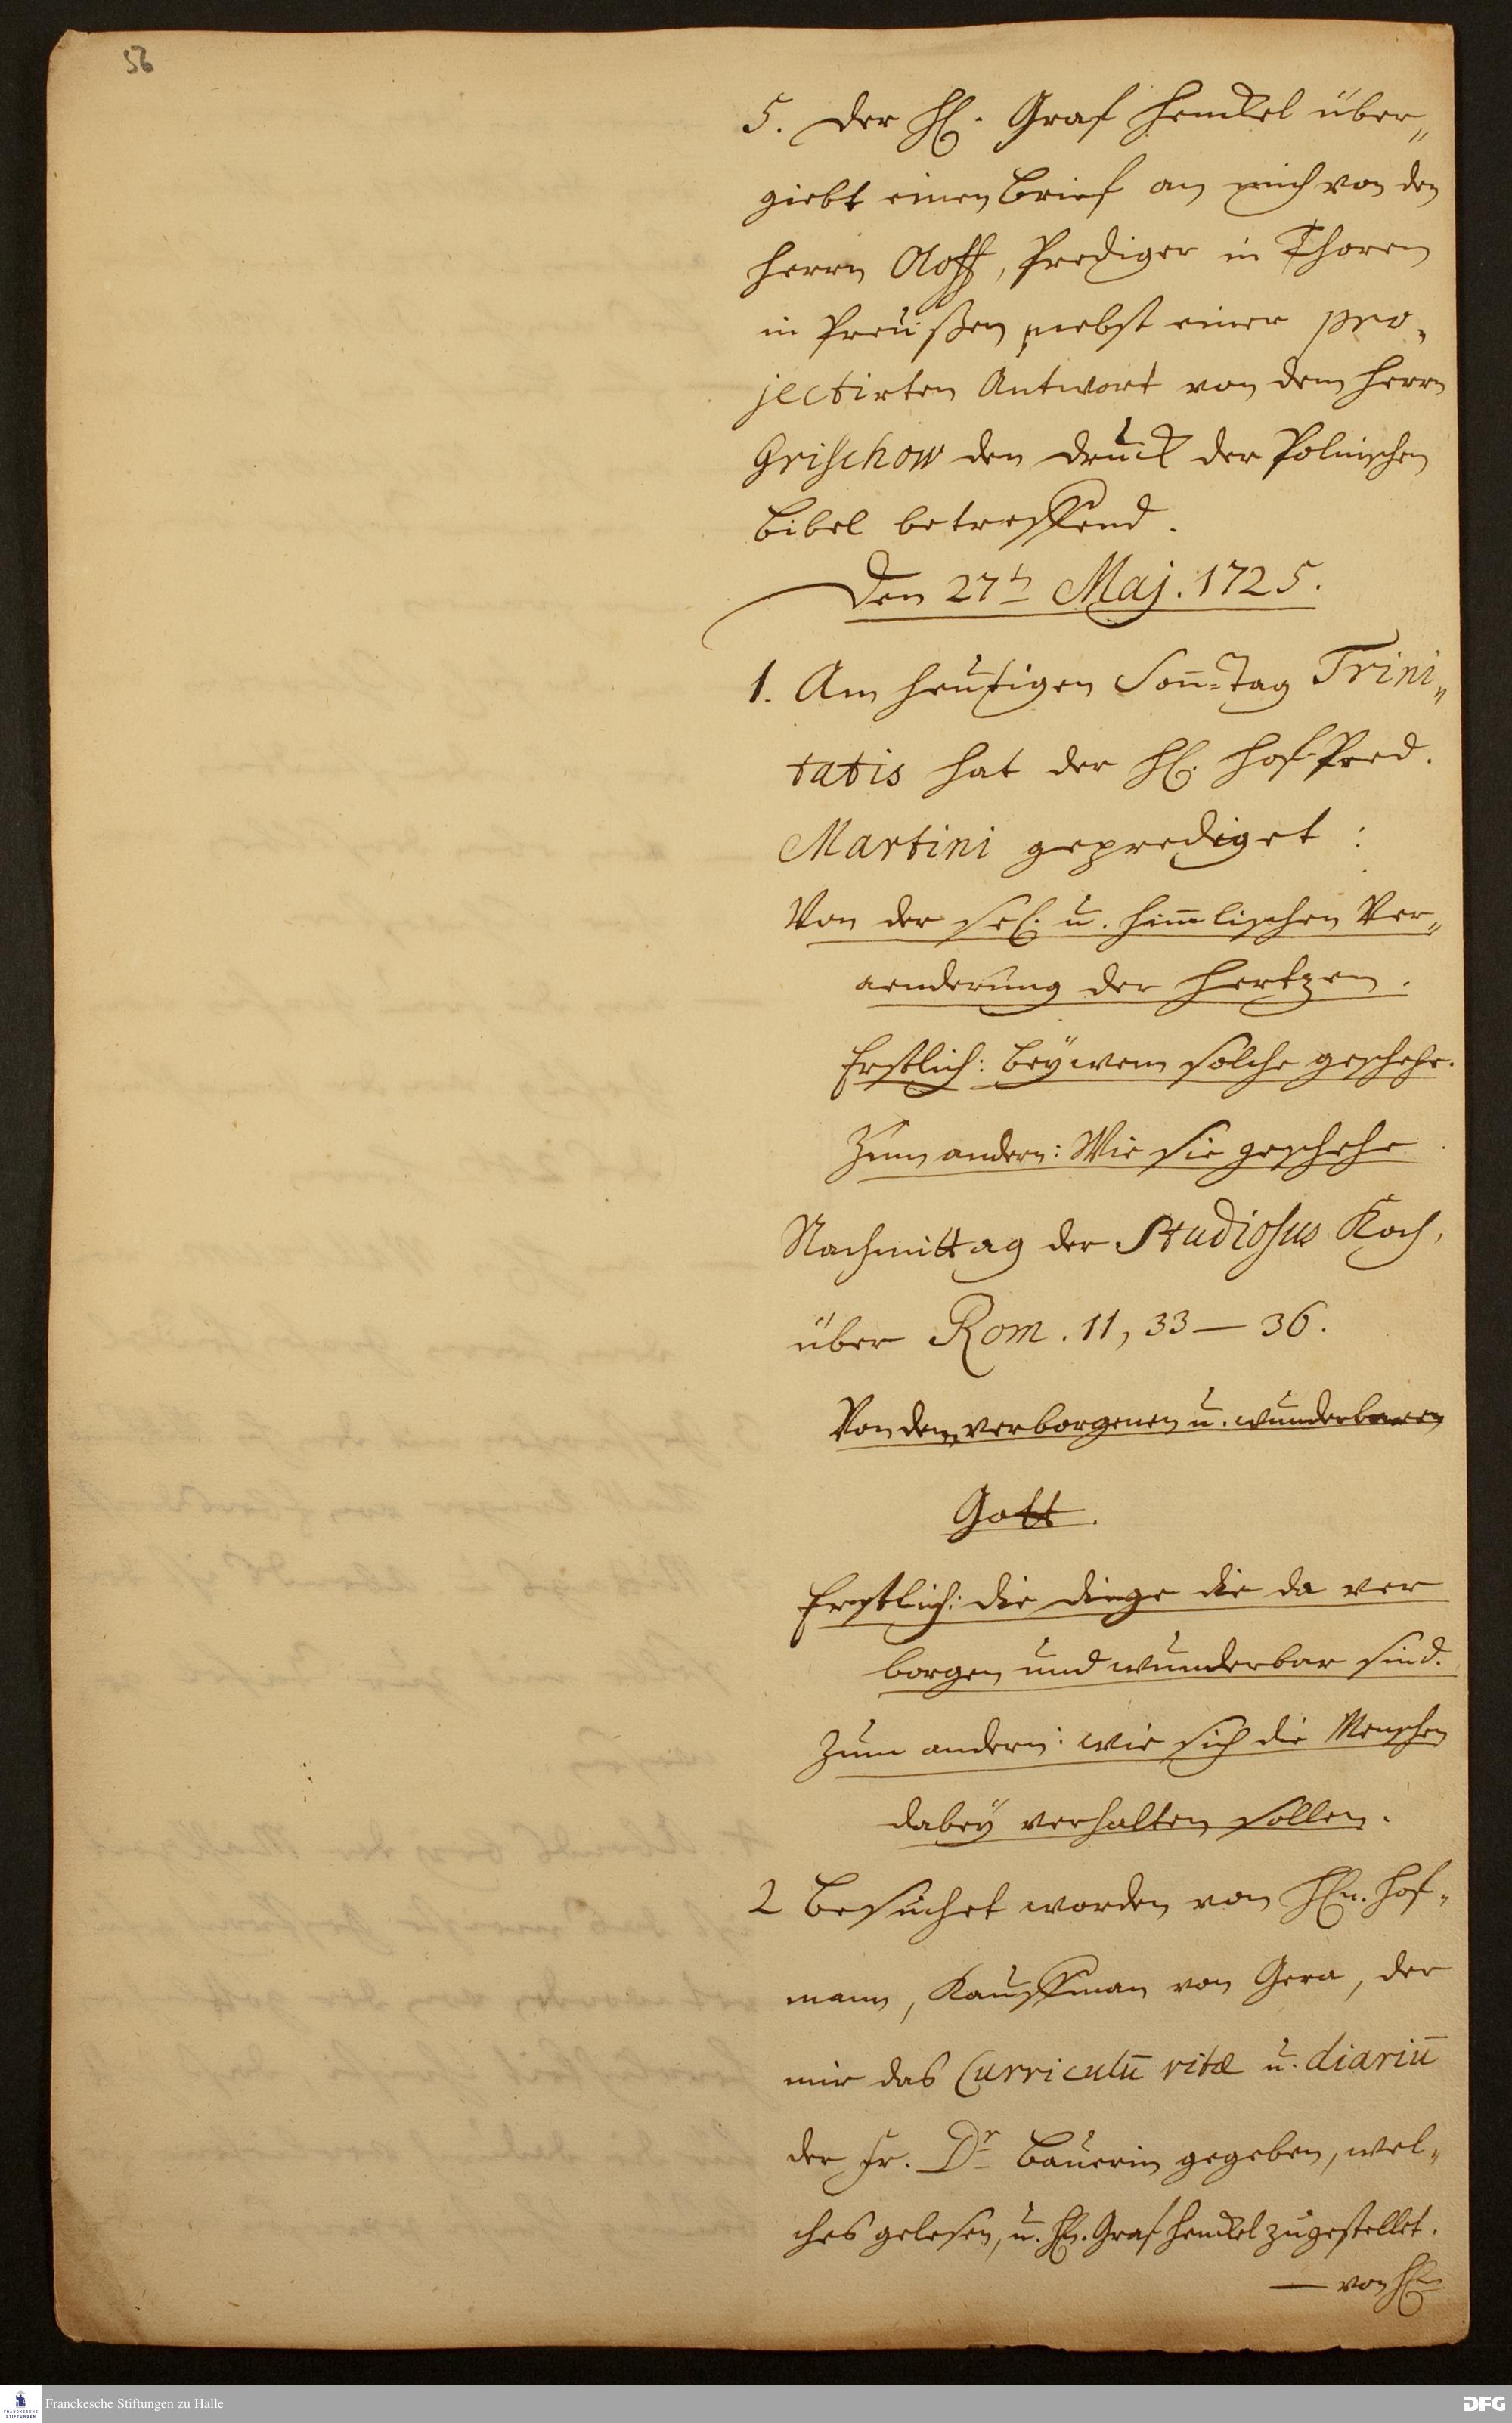 56
5. Der H. Graf Henckel über„
giebt einen Brief an mich von den
Herrn Oloff, Prediger in Thoren
in Preußen nebst einer pro„
jectirten Antwort von dem Herrn
Grischow den Druck der Polnischen
Bibel betreffend.
Den 27t. Maj. 1725.
1. Am heutigen Soñ=Tag Trini„
tatis hat der H. Hof-Pred.
Martini geprediget:
Von der sel. u. him̄lischen Ver„
aenderung der Hertzen.
Erstlich: bey wem solche geschehe.
Zum andern: Wie sie geschehe
Nachmittag der Studiosus Koch,
über Rom. 11, 33–36.
Von dem verborgenen u. wunderbaren
Gott.
Erstlich: die Dinge die da ver
borgen und wunderbar sind.
Zum andern: wie sich die Menschen
dabey verhalten sollen.
2 Besuchet worden von Hn. Hof„
mann, Kauffman von Gera, der
mir das Curriculū vitæ u. diariū
der Fr. Dr Bauerin gegeben, wel„
ches gelesen, u. Hn. Graf Henckel zugestellet.
— von Hn
Franckesche Stiftungen zu Halle
DFG